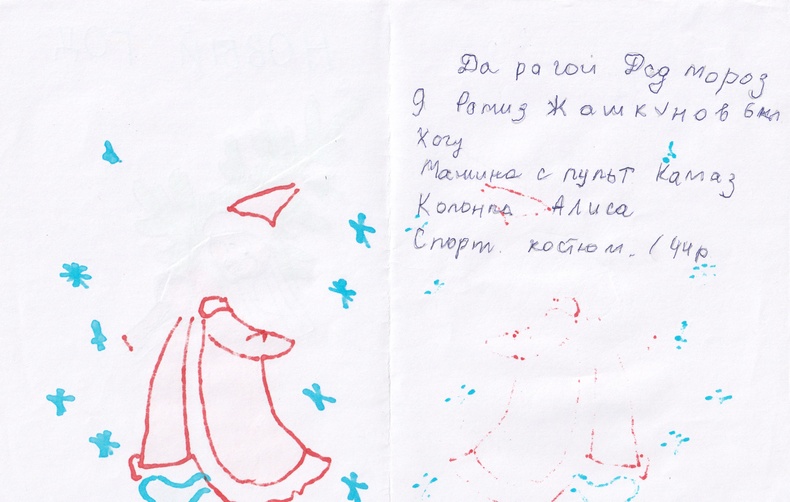 Да рагой Дед мороз
Я Рамиз Жашкунов 6 кл
Хочу
Машина с пульт Камаз
Колонка Алиса
Спорт. костюм. (44р